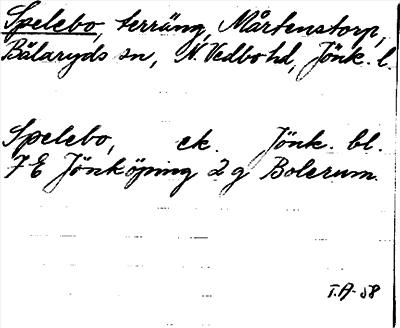 Spelebo, terräng, Mårtenstorp,
Bälaryds sn, N. Vedbohd, Jönk. l.
Spelebo, ek. Jönk. bl.
7 E Jönköping 2 g Bolerum.
T.A-58